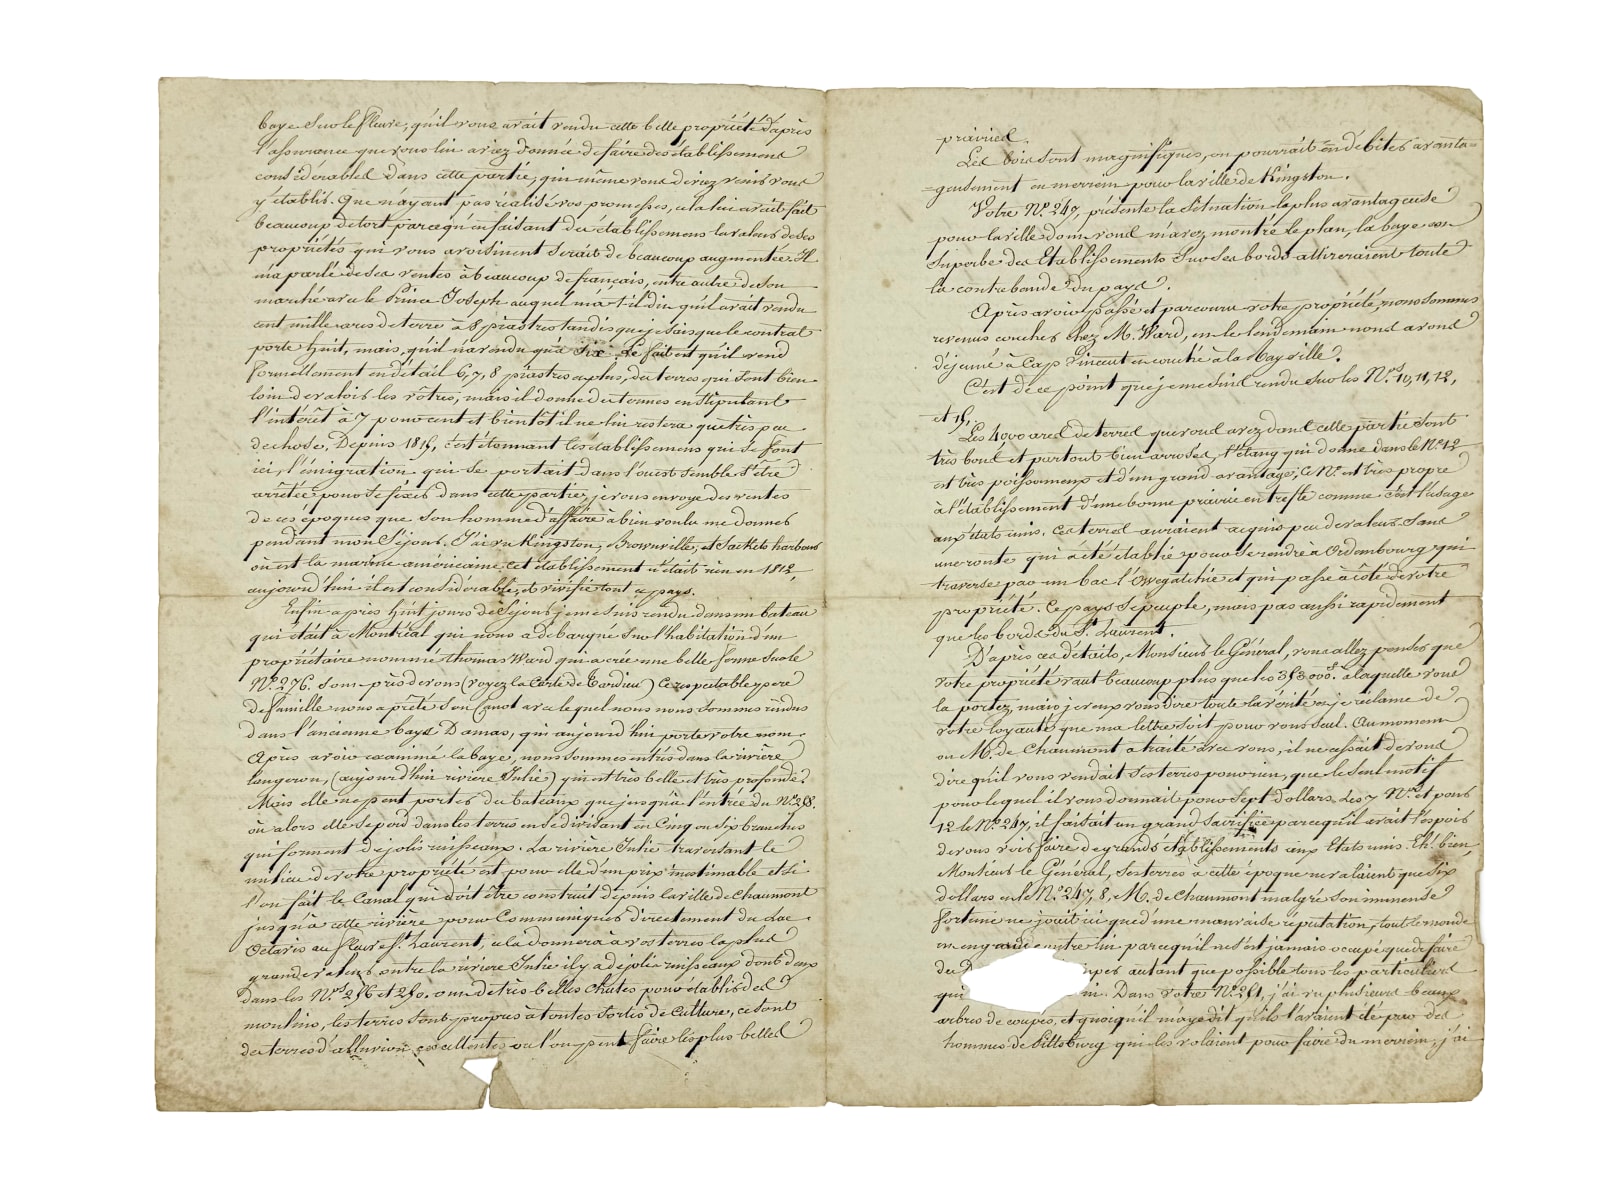 baye sur le fleuve, qu'il vous avait vendu cette belle propriété d'après
l'assurance que vous lui aviez donnée de faire des établissement
considérables dans cette partie, qui même vous deviez venir vous
y établir. Que n'ayant pas réalisé vos promesses, cela lui avait fait
beaucoup de tort parcequ'en faisant des établissemens la valeur de ses
propriétés qui vous avoisinent serait de beaucoup augmentée. Il
m'a parlé de ses ventes à beaucoup de français, entre autre de son
marché avec le Prince Joseph auquel m'a t-il dit qu'il avait vendu
cent mille acres de terre à 8 piastres tandis que je sais que le contrat
porte huit, mais, qu'il n'a vendu qu'à six. Le fait est qu'il vend
formellement en détail 6, 7, 8 piastres et plus, des terres qui sont bien
loin de valoir les vôtres, mais il donne des termes en stipulant
l'intérêt à 7 pour cent et bientôt il ne lui restera que très peu
de chose. Depuis 1815, c'est étonnant les établissemens qui se font
ici, l'émigration qui se portait dans l'ouest semble s'être
arrêtée pour se fixer dans cette partie, je vous envoye des ventes
de ces époques que son homme d'affaire à bien voulu me donner
pendant mon séjour. J'ai vu Kingston, Brownville, et Sackets harbour
où est la marine américaine, cet établissement n'était rien en 1812,
aujourd'hui il est considérable, et vivifie tout ce pays.
Enfin après huit jours de séjour je me suis rendu dans un bateau
qui était à Montréal qui nous a débarqué sur l'habitation d'un
propriétaire nommé thomas Ward qui a créé une belle ferme sur le
N.º 276. son près de vous (voyez la Carte de Tardieu) Ce respectable père
de famille nous a prêté son Canot avec lequel nous nous sommes rendus
dans l'ancienne baye Damas, qui aujourd'hui porte votre nom.
Après avoir examiné la baye, nous sommes entrés dans la rivière
langeron, (aujourd'hui rivière Julie) qui est très belle et très profonde.
Mais elle ne peut porter des bateaux que jusqu'à l'entrée du N.º 258.
où alors elle se perd dans les terres en se dividant en Cinq ou six branches
qui forment de jolis ruisseaux. La rivière Julie traversant le
milieu de votre propriété est pour elle d'un prix inestimable et si
l'on fait le Canal qui doit être construit depuis la ville de Chaumont
jusqu'à cette rivière pour Communiquer directement du Lac
Octario au fleuve S.t Laurent, cela donnera à vos terres la plus
grande valeur, outre la rivière Julie il y a de jolis ruisseaux dont deux
dans les N.os 256 et 250. ont de très belles chutes pour établir des
moulins, les terres sont propres à toutes sortes de Culture, ce sont
des terres d'alluvion excellentes où l'on peut faire les plus belles
prairies.
Les bois sont magnifiques, on pourrait en débiter avanta-
geusement en merrein pour la ville de Kingston.
Votre N.º 247, présente la situation la plus avantageuse
pour la ville dont vous m'avez montré le plan, la baye est
superbe des Etablissements sur ses bords attireraient toute
la contrebande du pays.
Après avoir passé et parcouru votre propriété, nous sommes
revenus coucher chez M. Ward, et le lendemain nous avons
déjeuné à Cap Vincent et couché à la Rayville.
C'est de ce point que je me suis rendu sur les N.os 10, 11, 12,
et 15.
Les 4000 acres de terres que vous avez dans cette partie sont
très bons et partout bien arrosés, l'étang qui donne dans le N.º 12
est très poissonneux et d'un grand avantage; ce N.º est très propre
à l'établissement d'une bonne prairie en treffle comme c'est l'usage
aux états unis. Ces terres auraient acquis peu de valeur sans
une route qui a été établie pour se rendre à Ordembourg qui
traverse par un bac l'Owegatchie et qui passe à côté de votre
propriété. Ce pays se peuple, mais pas aussi rapidement
que les bords du S.t Laurent.
D'après ces détails, Monsieur le Général, vous allez penser que
votre propriété vaut beaucoup plus que les 353 000f à laquelle vous
la portez, mais je veux vous dire toute la vérité et je réclame de
votre loyauté que ma lettre soit pour vous seul. Au moment
où M. de Chaumont a traité avec vous, il ne cessait de vous
dire qu'il vous vendait ses terres pour rien, que le seul motif
pour lequel il vous donnait pour sept dollars les 7 N.os et pour
12 le N.º 247, il faisait un grand sacrifice parcequ'il avait l'espoir
de vous voir faire de grands établissements aux Etats unis. Eh! bien,
Monsieur le Général, ses terres à cette époque ne valaient que six
dollars et le N.º 247, 8, M. de Chaumont malgré son immense
fortune ne jouit ici que d'une mauvaise réputation, tout le monde
contre lui parcequ'il ne s'est jamais occupé que de faire
autant que possible tous les particuliers
qui Dans votre N.º 251, j'ai vu plusieurs beaux
arbres de coupés, et quoiqu'il m'aye dit qu'ils l'avaient été par des
hommes de Pittsburg qui les volaient pour faire du merrein, j'ai